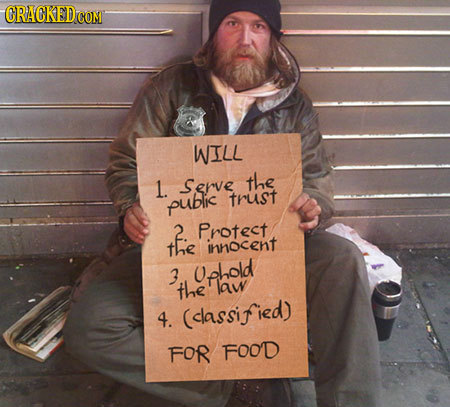 CRACKED.COM
WILL
1. Serve the
public trust
2. Protect
the innocent
3. Uphold
the law
4. (classified)
FOR FOOD